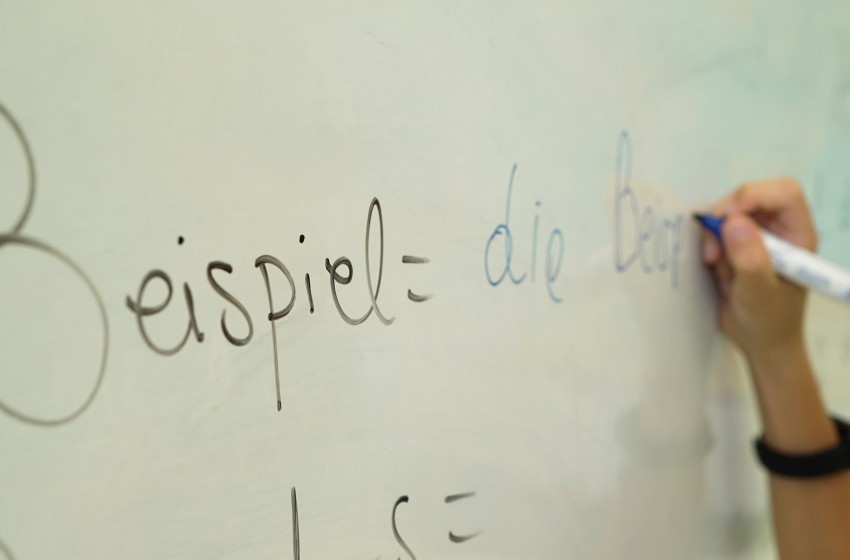 Beispiel= die Beisp